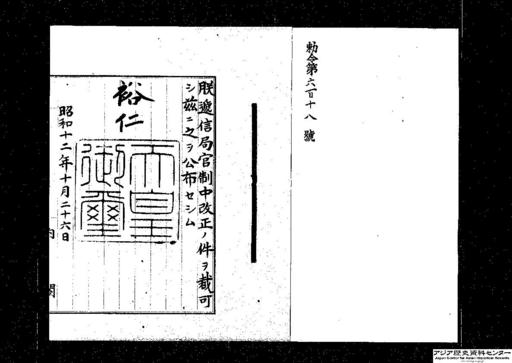 勅令第六百十八號
朕遞信局官制中改正ノ件ヲ裁可
シ茲ニ之ヲ公布セシム
裕仁
天皇
御璽
昭和十二年十月二十六日
内閣
アジア歴史資料センター
Japan Center for Asian Historical Records